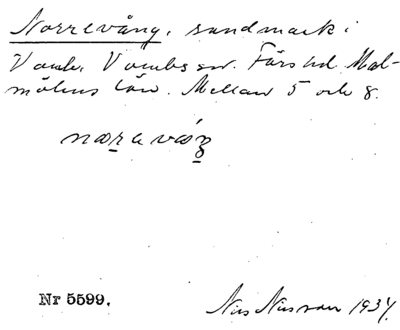 Norrevång, sandmark i
Vomb. Vombs sn. Färs hd. Mal-
möhus län. Mellan 5 och 8.
Nr 5599.
Nils Nilsson 1937.